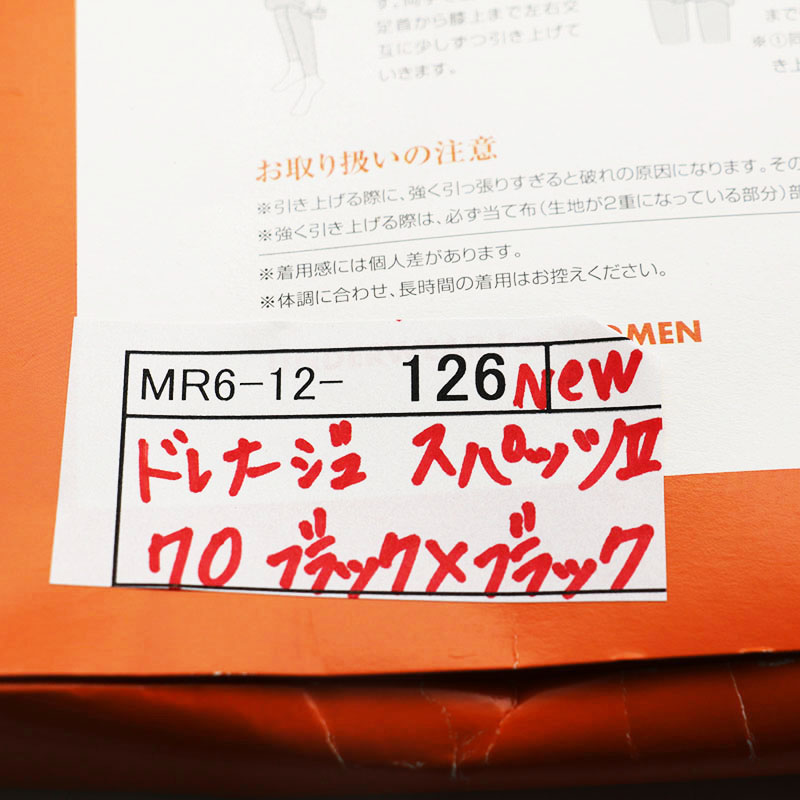 足首から膝上まで左右交
互に少しずつ引き上げて
いきます。
まで
※①同
き上
お取り扱いの注意
※引き上げる際に、強く引っ張りすぎると破れの原因になります。その
※強く引き上げる際は、必ず当て布(生地が2重になっている部分)部
※着用感には個人差があります。
※体調に合わせ、長時間の着用はお控えください。
OMEN
MR6-12- 126 New
ドレナージュ スパッツⅡ
70 ブラック×ブラック